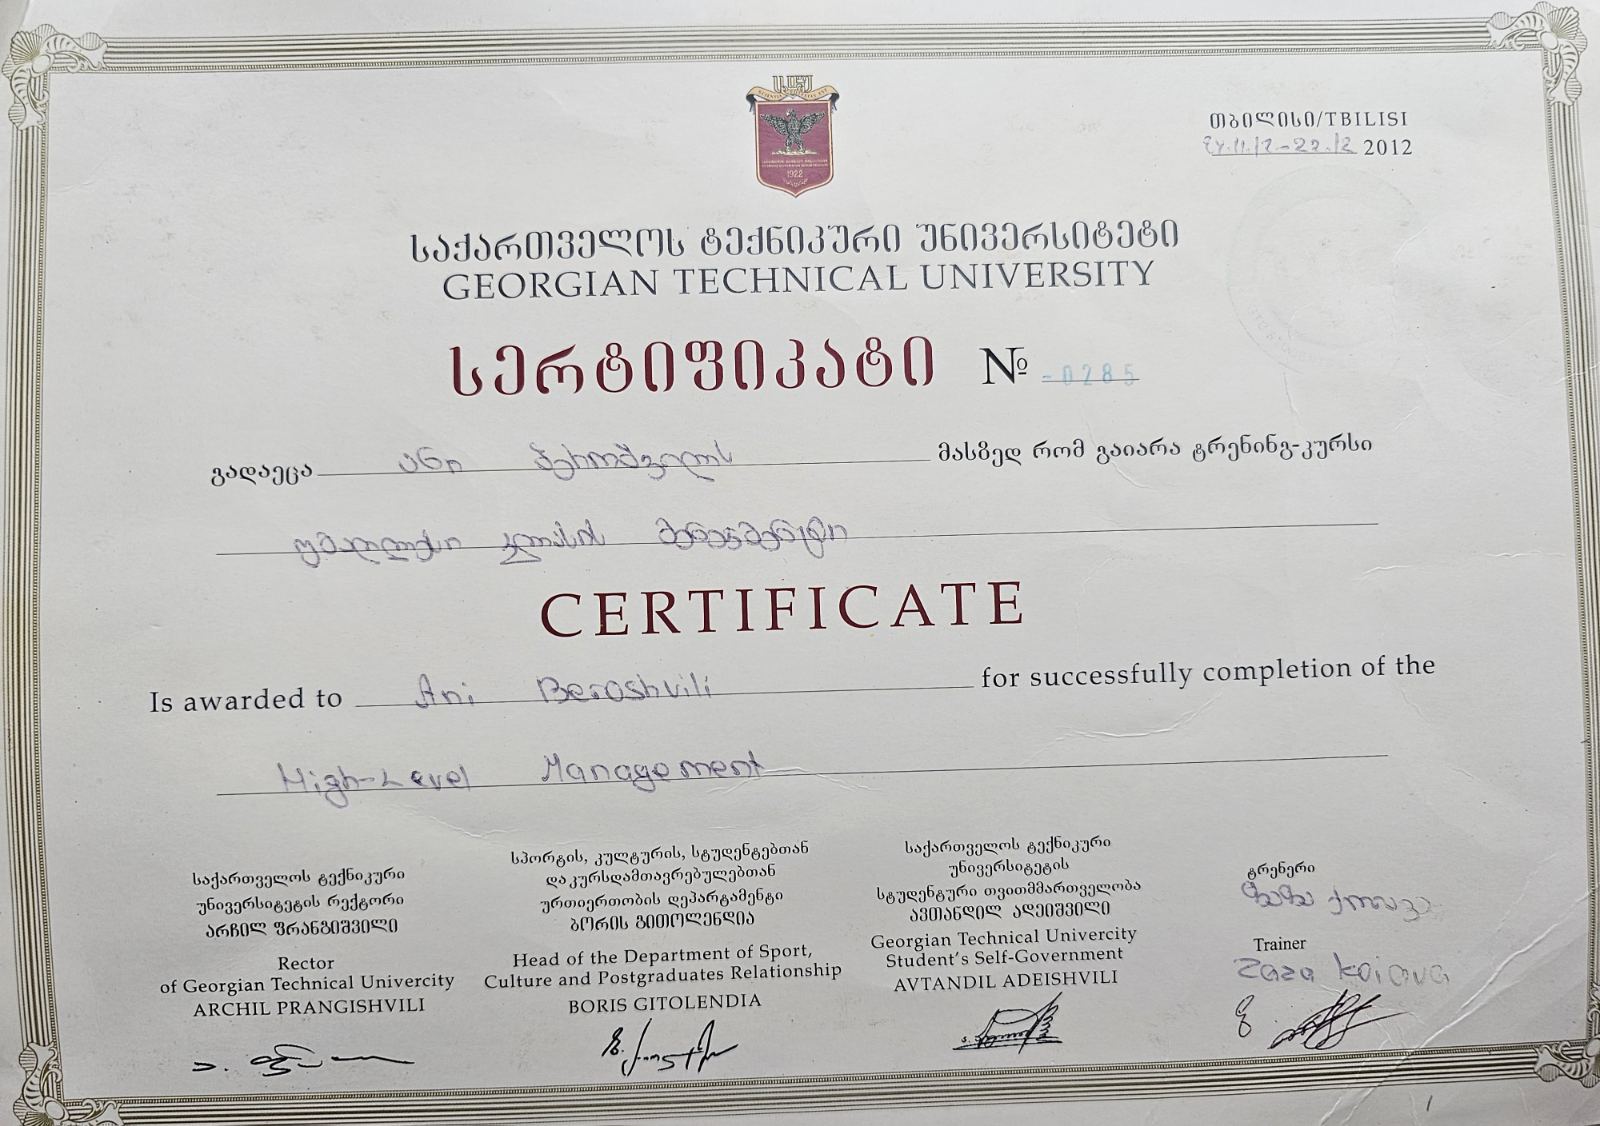 1922
თბილისი/TBILISI
2012
საქართველოს ტექნიკური უნივერსიტეტი
GEORGIAN TECHNICAL UNIVERSITY
სერტიფიკატი № -0285
გადაეცა ანი ბეროშვილს მასზედ რომ გაიარა ტრენინგ-კურსი
უმაღლესი კლასის მენეჯმენტი
CERTIFICATE
Is awarded to Ani Beroshvili for successfully completion of the
High-Level Management
საქართველოს ტექნიკური
უნივერსიტეტის რექტორი
არჩილ ფრანგიშვილი
Rector
of Georgian Technical Univercity
ARCHIL PRANGISHVILI
სპორტის, კულტურის, სტუდენტებთან
და კურსდამთავრებულებთან
ურთიერთობის დეპარტამენტი
ბორის გითოლენდია
Head of the Department of Sport,
Culture and Postgraduates Relationship
BORIS GITOLENDIA
საქართველოს ტექნიკური
უნივერსიტეტის
სტუდენტური თვითმმართველობა
ავთანდილ ადეიშვილი
Georgian Technical Univercity
Student's Self-Government
AVTANDIL ADEISHVILI
ტრენერი
ზაზა ქოიავა
Trainer
Zaza Koiava